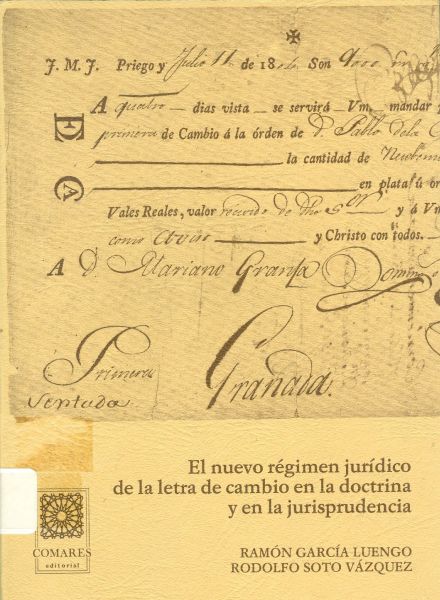 J. M. J. Priego y Julio 11 de 18 Son 9000
A quatro dias vista se servirá Vm. mandar
primera de Cambio á la órden de D. Pablo de la
la cantidad de
en plata ú or
Vales Reales, valor recivido de dho Sor y á Vm
como aviso y Christo con todos.
A D. Mariano Granja
Primera
Granada.
Sentada
El nuevo régimen jurídico
de la letra de cambio en la doctrina
y en la jurisprudencia
COMARES
editorial
RAMÓN GARCÍA LUENGO
RODOLFO SOTO VÁZQUEZ